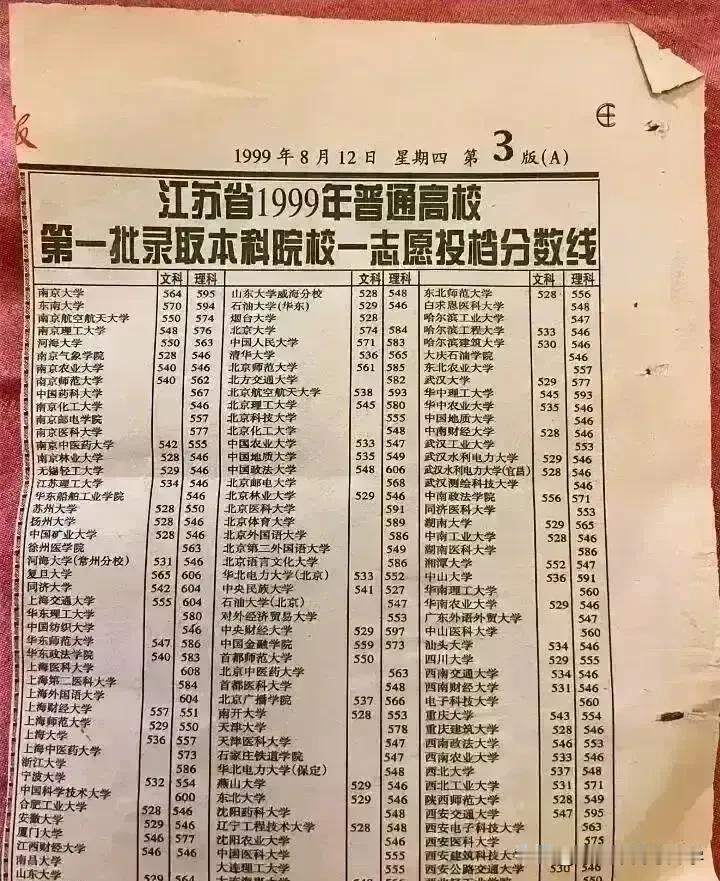 报
1999年8月12日 星期四 第3版(A)
江苏省1999年普通高校
第一批录取本科院校一志愿投档分数线
文科 理科
南京大学 564 595
东南大学 570 594
南京航空航天大学 550 574
南京理工大学 548 576
河海大学 550 563
南京气象学院 528 546
南京农业大学 540 546
南京师范大学 540 562
中国药科大学 567
南京化工大学 546
南京邮电学院 567
南京医科大学 577
南京中医药大学 542 555
南京林业大学 528 546
无锡轻工大学 529 546
江苏理工大学 534 546
华东船舶工业学院 546
苏州大学 528 550
扬州大学 528 546
中国矿业大学 528 546
徐州医学院 563
河海大学(常州分校) 531 546
复旦大学 565 606
同济大学 542 604
上海交通大学 555 604
华东理工大学 580
中国纺织大学 546
华东师范大学 547 586
华东政法学院 540 583
上海医科大学 608
上海第二医科大学 584
上海外国语大学 604
上海财经大学 557 551
上海师范大学 529 550
上海大学 536 557
上海中医药大学 573
浙江大学 586
宁波大学 532 554
中国科学技术大学 600
合肥工业大学 528 546
安徽大学 529 546
厦门大学 546 577
江西财经大学 546 546
南昌大学
山东大学 529 564
文科 理科
山东大学威海分校 528 548
石油大学(华东) 529 546
烟台大学 528
北京大学 574 584
中国人民大学 571 583
清华大学 536 565
北京师范大学 561 585
北方交通大学 582
北京航空航天大学 538 593
北京理工大学 545 580
北京科技大学 555
北京化工大学 548
中国农业大学 533 547
中国地质大学 535 549
中国政法大学 548 606
北京邮电大学 568
北京林业大学 529 546
北京医科大学 591
北京体育大学 589
北京外国语大学 586
北京第二外国语大学 549
北京语言文化大学 586
华北电力大学(北京) 533 552
中央民族大学 541 527
石油大学(北京) 547
对外经济贸易大学 553
中央财经大学 529 597
中国金融学院 559 573
首都师范大学 550
北京中医药大学 563
首都医科大学 548
北京广播学院 537 566
南开大学 528 553
天津大学 578
天津医科大学 547
石家庄铁道学院 547
华北电力大学(保定) 548
燕山大学 529 546
东北大学 529 546
沈阳药科大学 548
辽宁工程技术大学 528 548
沈阳农业大学 546
中国医科大学 555
大连理工大学 555
文科 理科
东北师范大学 528 556
白求恩医科大学 548
哈尔滨工业大学 547
哈尔滨工程大学 533 546
哈尔滨建筑大学 530 546
大庆石油学院 546
东北农业大学 557
武汉大学 529 577
华中理工大学 545 593
华中农业大学 535 546
中国地质大学 546
中南财经大学 528 546
武汉工业大学 553
武汉水利电力大学 529 546
武汉水利电力大学(宜昌) 528 546
武汉测绘科技大学 546
中南政法学院 556 571
同济医科大学 553
湖南大学 529 565
中南工业大学 528 546
湖南医科大学 586
湘潭大学 552 547
中山大学 536 591
华南理工大学 560
华南农业大学 529 546
广东外语外贸大学 547
中山医科大学 560
汕头大学 534 546
四川大学 529 555
西南交通大学 534 546
西南财经大学 531 546
电子科技大学 560
重庆大学 543 554
重庆建筑大学 528 546
西南政法大学 546 553
西南农业大学 533 546
西北大学 537 548
西北工业大学 531 571
陕西师范大学 528 549
西安交通大学 547 595
西安电子科技大学 563
西安医科大学 575
西安建筑科技大
西安公路交通大学 530 546